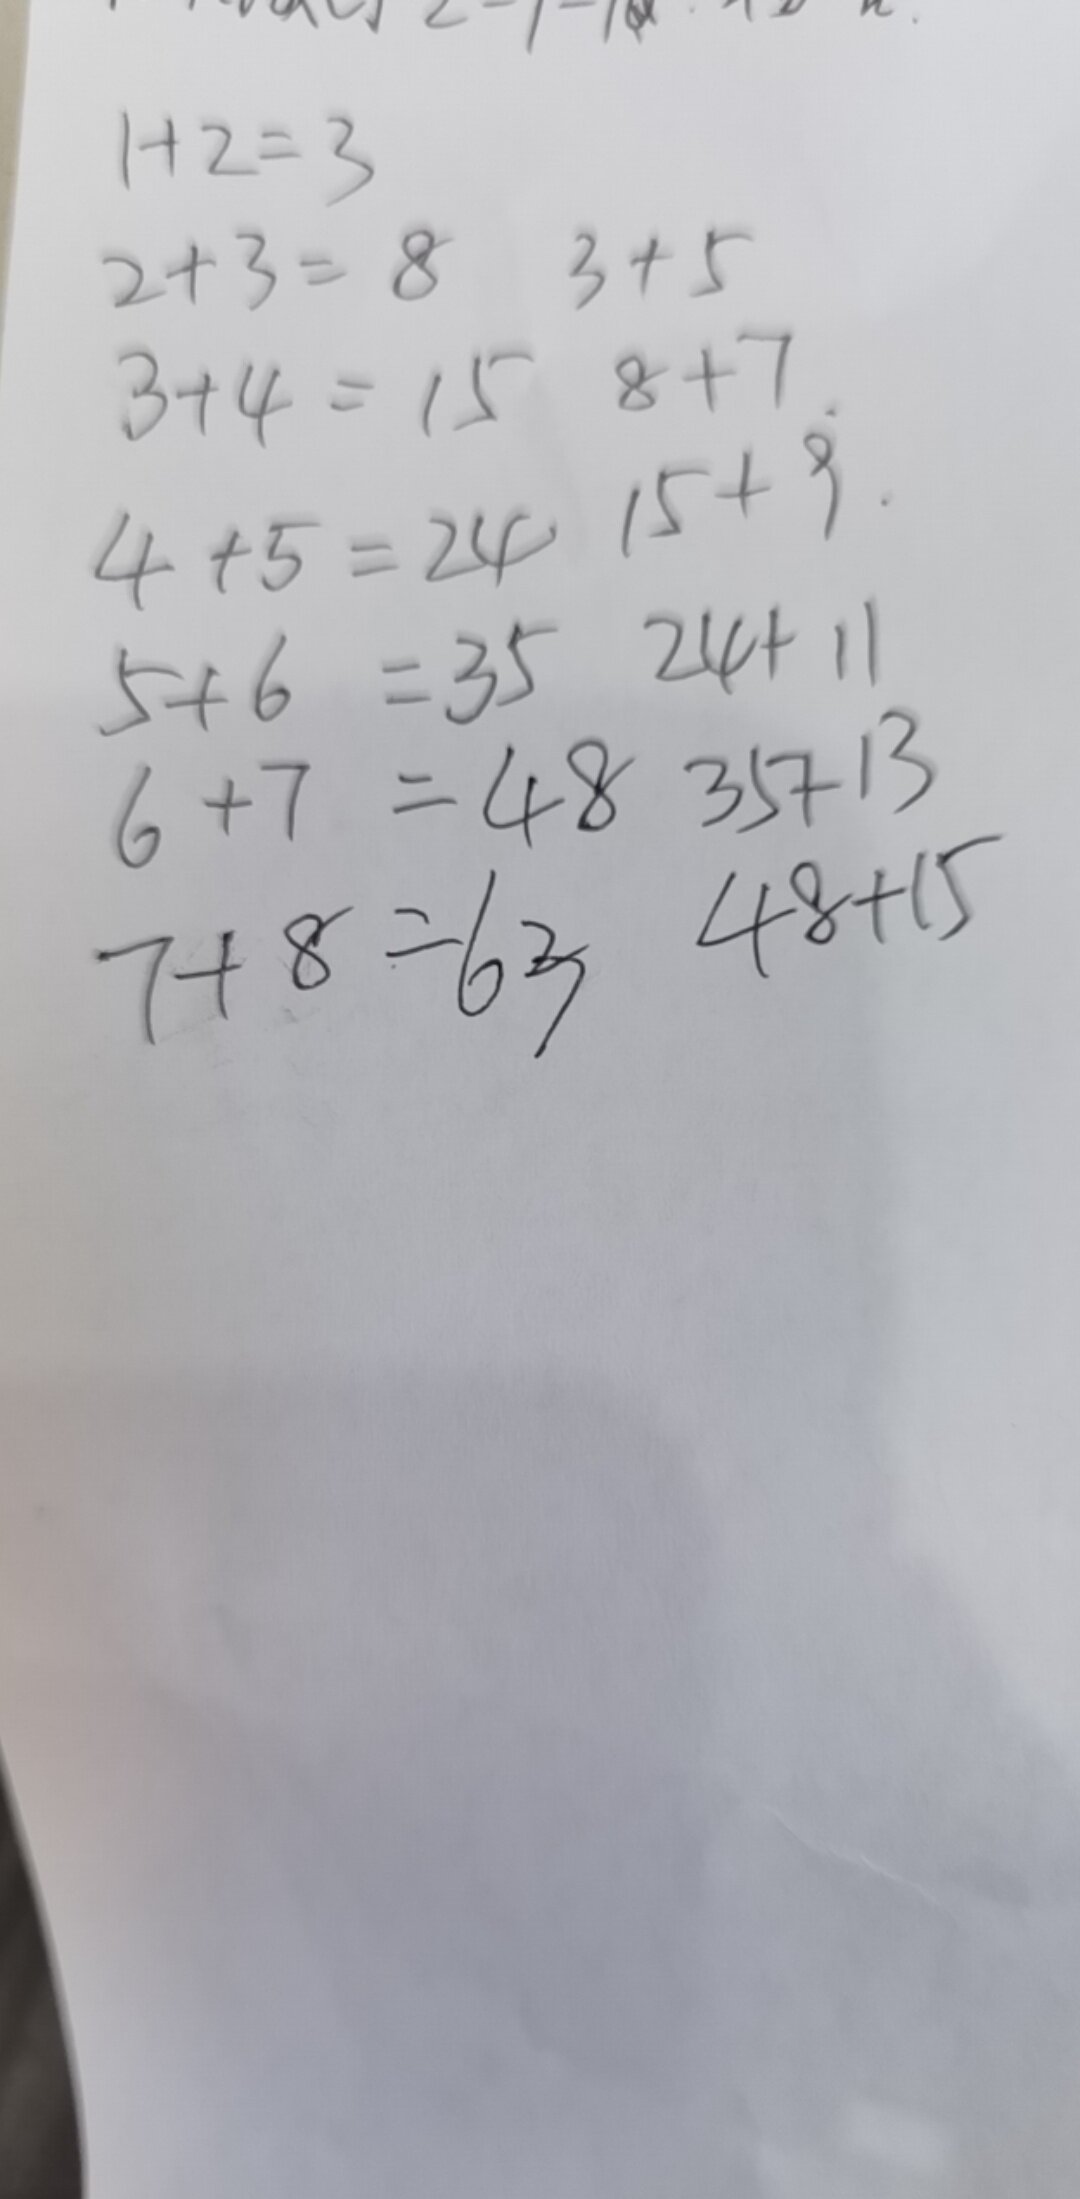 1+2=3
2+3=8 3+5
3+4=15 8+7
4+5=24 15+9.
5+6=35 24+11
6+7=48 35+13
7+8=63 48+15